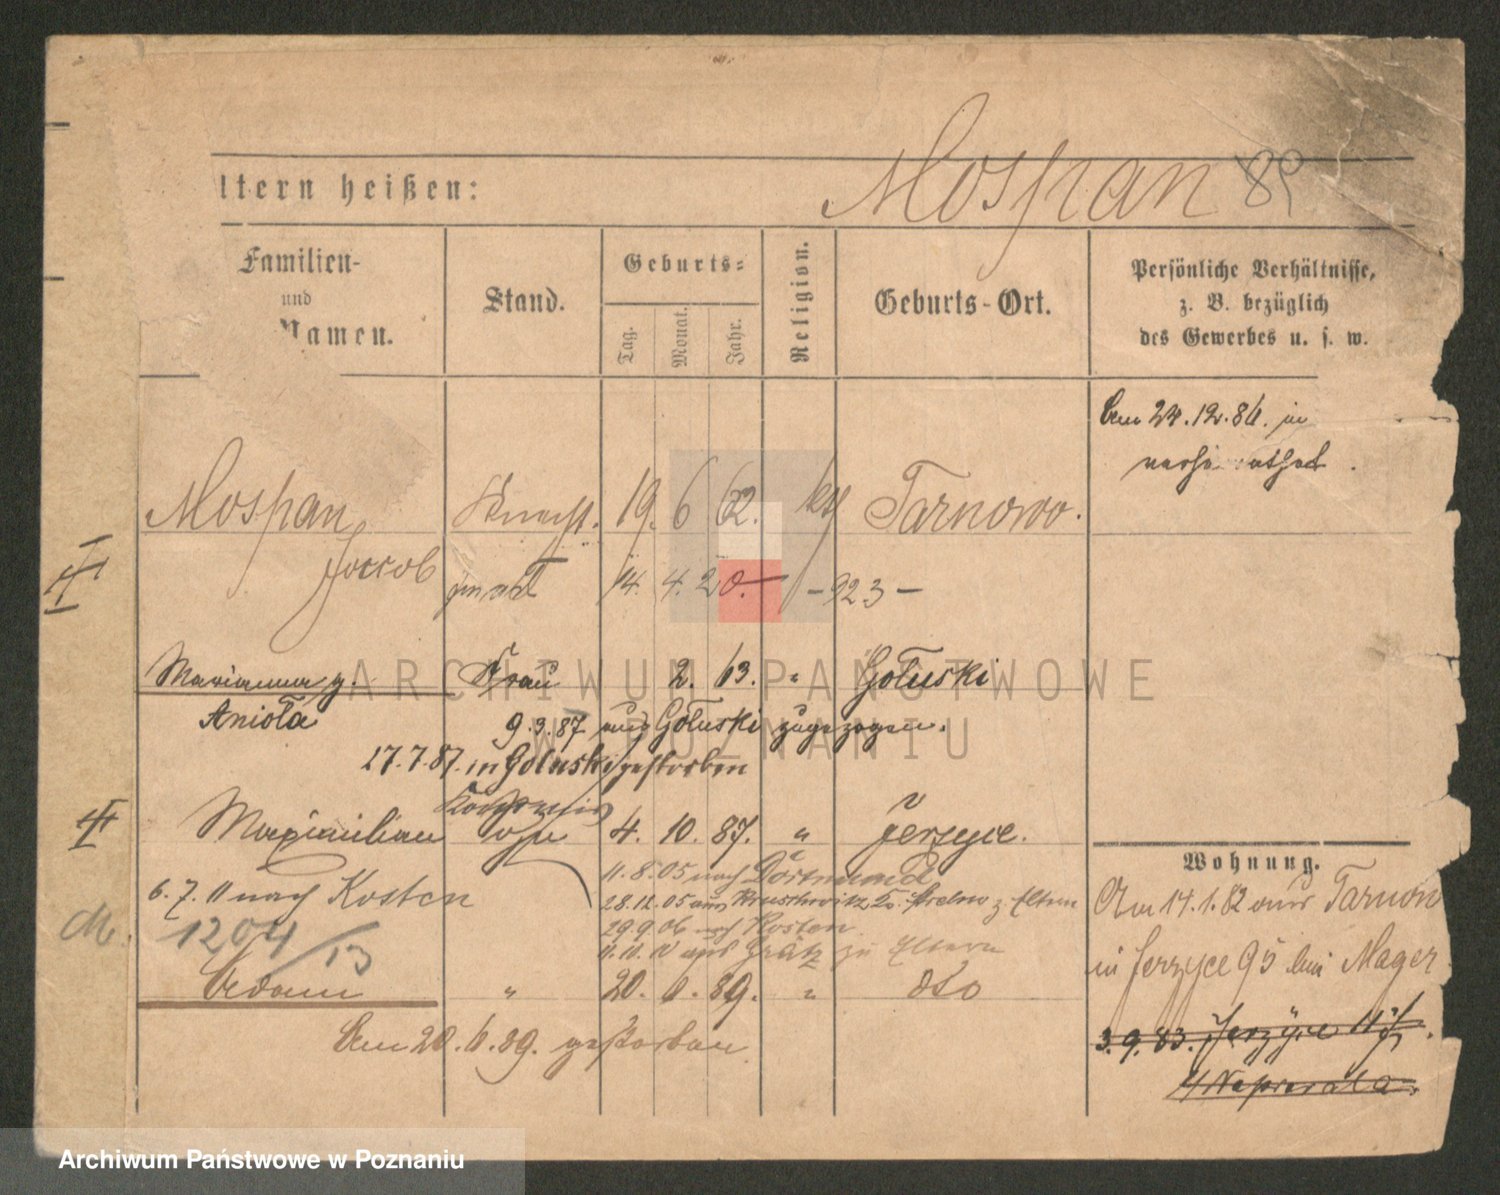 ltern heißen:
Mospan 89
Familien-
und
Namen.
Stand.
Geburts-
Tag.
Monat.
Jahr.
Religion.
Geburts-Ort.
Persönliche Verhältnisse,
z. B. bezüglich
des Gewerbes u. s. w.
Am 24.12.86. in
Mospan Knecht. 19. 6 62. kth Tarnowo.
Jacob
14. 4. 20. - 923 -
Marianna g. Frau 2. 63. " Gołuski
Anioła
9.3.87 aus Gołuski zugezogen.
17.7.87. in Goluski gestorben
Maximilian Sohn 4. 10. 87. " Jerzyce.
11.8.05 nach Dortmund
6.7.11 nach Kosten
28.12.05 aus z. Eltern
29.9.06 nach Kosten
11.11.10 aus Grätz zu Eltern
M.
1204/13
Adam " 20. 6. 89. " dto
Am 20.6.89. gestorben
Wohnung.
Am 14.1.82 aus Tarnow
in Jerzyce 95 bei Mager
3.9.83. Jerzyce
b/ Naprerała.
ARCHIWUM PAŃSTWOWE
W POZNANIU
Archiwum Państwowe w Poznaniu